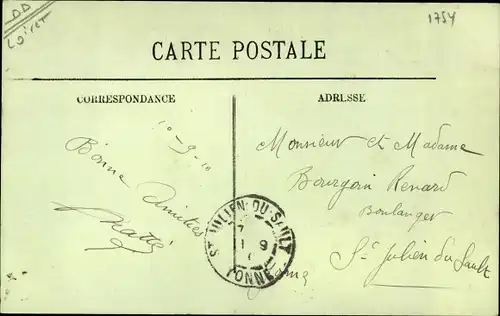 DD
Loiret
1754
CARTE POSTALE
CORRESPONDANCE
ADRLSSE
10-9-10
Bonne Amitiés
Monsieur et Madame
Bourgoin Renard
Boulanger
St Julien du Sault
Yonne
ST JULIEN-DU-SAULT
7
1 9
YONNE